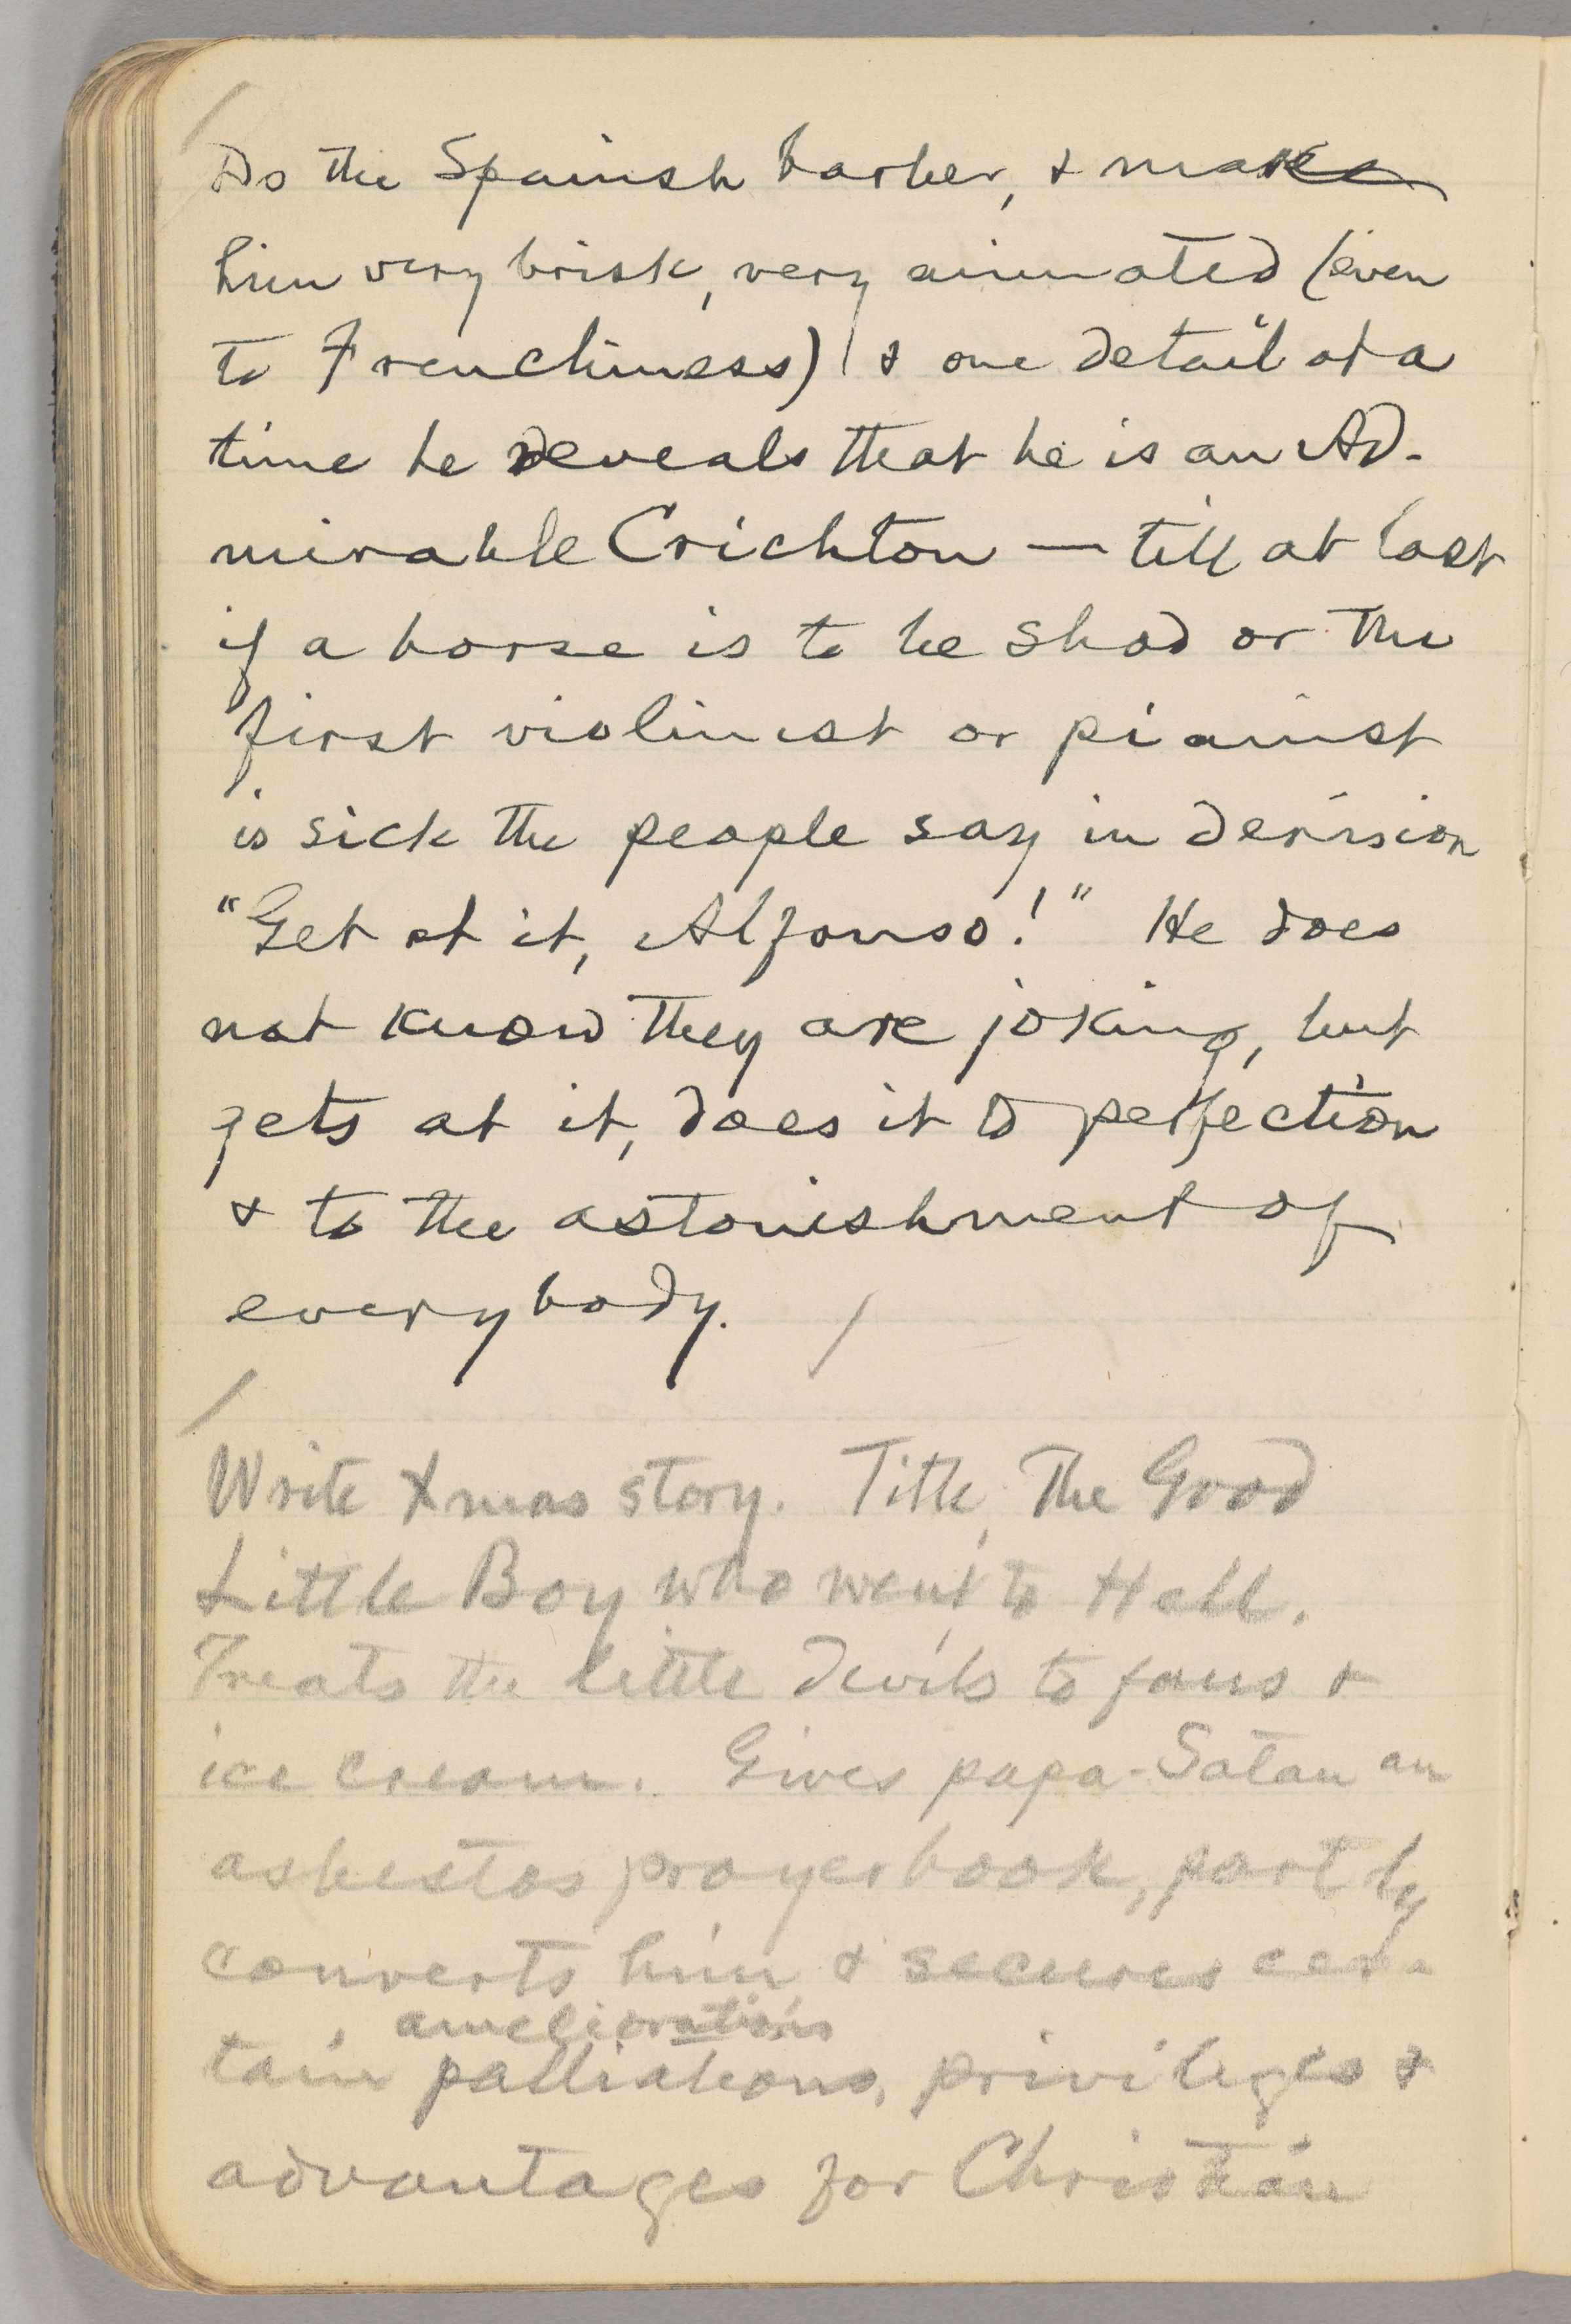 Do the Spanish barber, & make
him very brisk, very animated (even
to Frenchiness) & one detail at a
time he reveals that he is an Ad-
mirable Crichton — till at last
if a horse is to be shod or the
first violinist or pianist
is sick the people say in derision
"Get at it, Alfonso!" He does
not know they are joking, but
gets at it, does it to perfection
& to the astonishment of
everybody. /
Write Xmas story. Title, The Good
Little Boy who went to Hell.
Treats the little devils to fans &
ice cream. Gives papa-Satan an
asbestos prayerbook, partly
converts him & secures cer-
ameliorations
tain palliations, privileges &
advantages for Christian